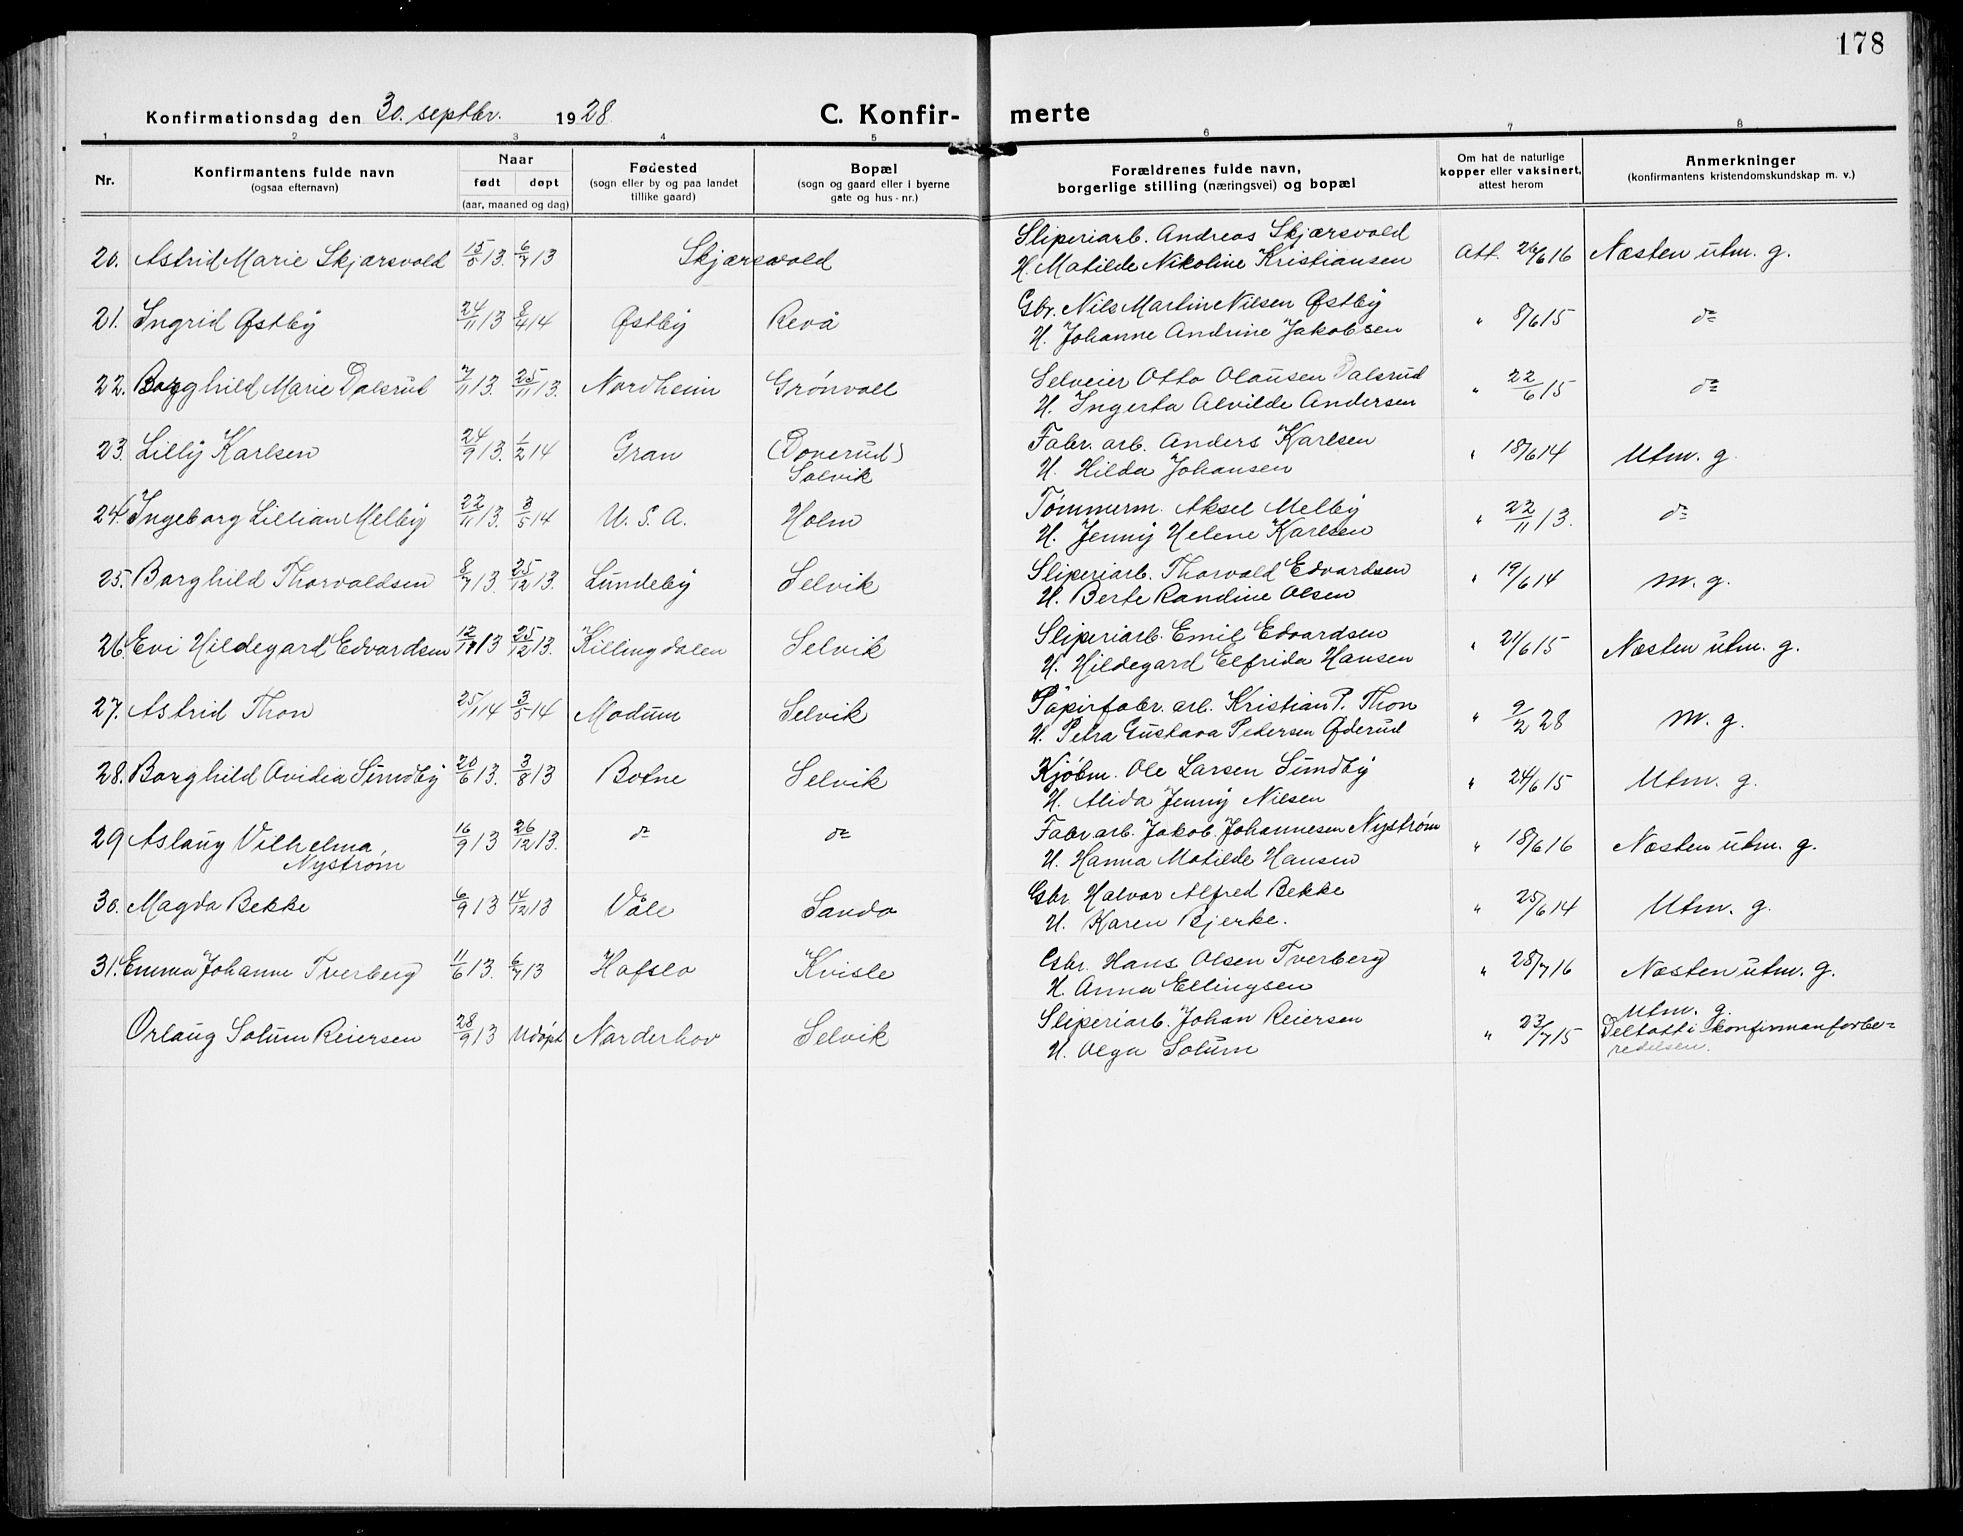 178
Konfirmationsdag den 30. septbr. 1928
C. Konfirmerte
1 2 3 4 5 6 7 8
Nr.
Konfirmantens fulde navn
(ogsaa efternavn)
Naar
født døpt
(aar, maaned og dag)
Fødested
(sogn eller by og paa landet
tillike gaard)
Bopæl
(sogn og gaard eller i byerne
gate og hus-nr.)
Forældrenes fulde navn,
borgerlige stilling (næringsvei) og bopæl
Om hat de naturlige
kopper eller vaksinert,
attest herom
Anmerkninger
(konfirmantens kristendomskundskap m. v.)
20. Astrid Marie Skjærsvold 15/5 13. 6/7 13 Skjærsvold Sliperiarb. Andreas Skjærsvold
H. Matilde Nikoline Kristiansen Att. 26/6 16 Næsten utm. g.
21. Ingrid Østby 24/11 13 8/4 14 Østby Revå Gbr. Nils Martin Nilsen Østby
H. Johanne Andrine Jakobsen " 8/6 15 do
22. Borghild Marie Dalsrud 7/11 13. 25/11 13. Nordheim Grønvoll Selveier Otto Olausen Dalsrud
H. Ingerta Alvilde Andersen " 22/6 15 do
23. Lilly Karlsen 24/9 13. 1/2 14 Gran (Donerud) Fabr. arb. Anders Karlsen
Solvik H. Hilda Johansen " 18/6 14 Utm. g.
24. Ingeborg Lillian Melby 22/11 13. 3/5 14 U. S. A. Holm Tømmerm. Aksel Melby
H. Jenny Helene Karlsen " 22/11 13. do
25. Borghild Thorvaldsen 8/7 13. 25/12 13. Lundeby Selvik Sliperiarb. Thorvald Edvardsen
H. Berte Randine Olsen " 19/6 14 m. g.
26. Evi Hildegard Edvardsen 12/11 13 25/12 13. Killingdalen Selvik Sliperiarb. Emil Edvardsen
H. Hildegard Elfrida Hansen " 21/6 15 Næsten utm. g.
27. Astrid Thon 25/1 14 3/5 14 Modum Selvik Papirfabr. arb. Kristian P. Thon
H. Petra Gustava Pedersen Øderud " 9/2 28 m. g.
28. Borghild Ovidia Sundby 20/6 13. 3/8 13 Botne Selvik Kjøbm. Ole Larsen Sundby
H. Alida Jenny Nilsen " 24/6 15 Utm. g.
29 Aslaug Vilhelma 16/9 13 26/12 13. do do Fabr arb. Jakob Johannesen Nystrøm
Nystrøm H. Hanna Matilde Hansen " 18/6 16 Næsten utm. g.
30. Magda Bekke 6/9 13 14/12 13 Våle Sando Gbr. Halvor Alfred Bekke
H. Karen Bjerke. " 25/6 14 Utm. g.
31. Emma Johanne Tverberg 11/6 13. 6/7 13 Hafslo Kvisle Gbr. Hans Olsen Tverberg
H. Anna Ellingsen " 28/7 16 Næsten utm. g.
Orlaug Solum Reiersen 28/9 13 Udøpt Norderhov Selvik Sliperiarb. Johan Reiersen
H. Olga Solum " 23/7 15 Utm. g.
Deltatt i konfirmanforbe=
redelsen.